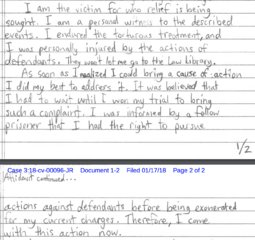 I am the victim for who relief is being
sought. I am a personal witness to the described
events. I endured the torturous treatment, and
I was personally injured by the actions of
defendants. They won't let me go to the Law library.
As soon as I realized I could bring a cause of action
I did my best to address it. It was believed that
I had to wait until I won my trial to bring
such a complaint. I was informed by a fellow
prisoner that I had the right to pursue
1/2
Case 3:18-cv-00096-JR Document 1-2 Filed 01/17/18 Page 2 of 2
Affidavit continued...
actions against defendants before being exonerated
for my current charges. Therefore, I come
with this action now.